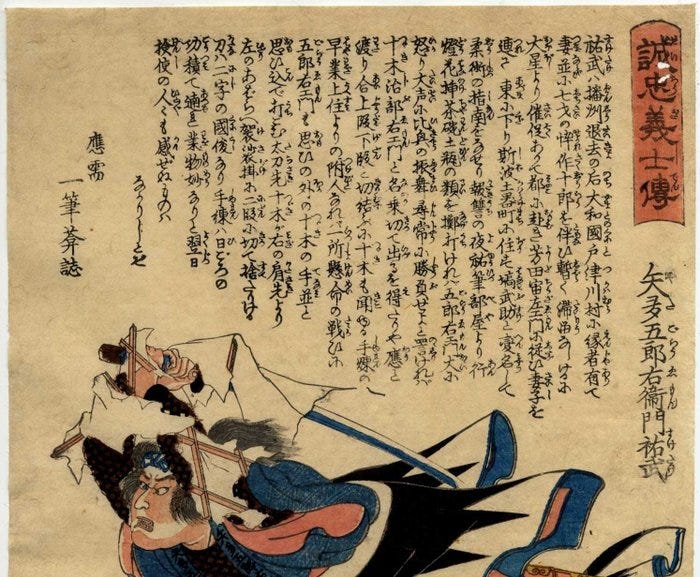 誠忠義士傳
矢多五郎右衛門祐武
祐武ハ播州退去の后大和國戸津川村に縁者有て
妻並に七才の悴作十郎を伴ひ暫く滞留ありしけるに
大星より催促ありて都に赴き芳田宙左エ門に従ひ妻子を
連て東に下り斯波土器町に住居塙武助と変名して
柔術の指南をなせり報讐の夜
燈花挿茶碗土瓶の類を擲打けれバ五郎右エ門大に
怒り大声に比興の振舞尋常に勝負せよと
十木治部右エ門と名乗切て出るを得たりや應と
渡り合上段下段に切結ぶに十木も聞ゆる手煉の
早業上佐よりの附人なれバ一所懸命の戦ひに
五郎右エ門も思ひの外の十木の手並と
思ひ込で打こむ太刀先十木が右の肩先より
左のあばらへ袈裟掛に二段に切て捨たりける
刀ハ二字の國俊なり手煉ハ日ごろの
功積て適れ業物妙なりと翌日
検使の人々も感ぜぬものハ
なかりしとぞ
應需
一筆莾誌